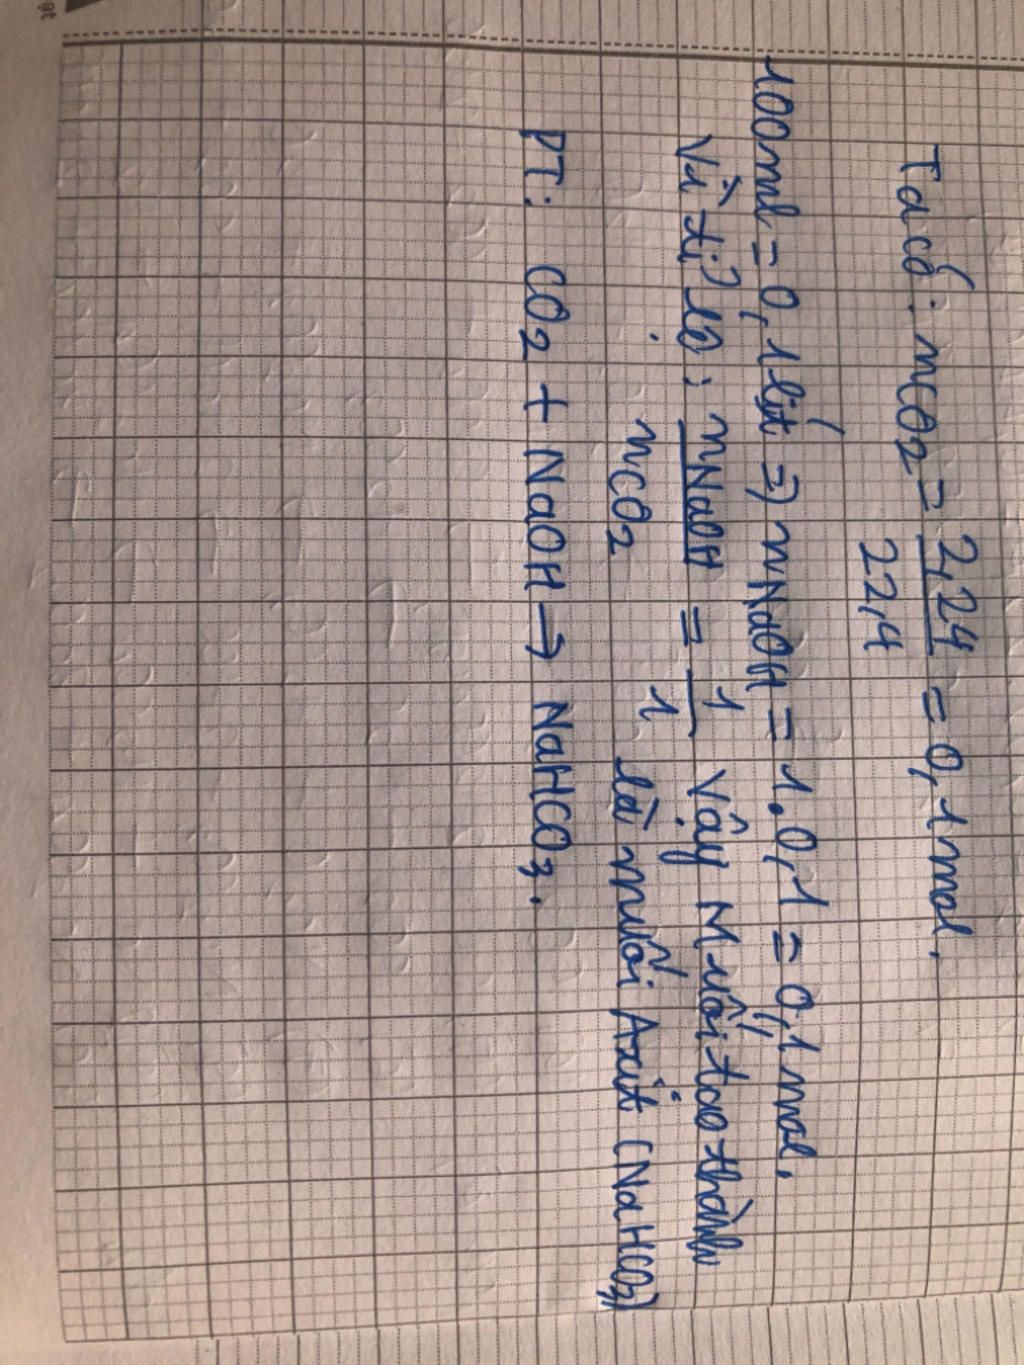 Ta có: nCO₂ = 2,24 / 22,4 = 0,1 mol.
100ml = 0,1 lít => nNaOH = 1.0,1 = 0,1 mol.
Vì tỉ lệ: nNaOH / nCO₂ = 1 / 1 Vậy Muối tạo thành
là muối Axit (NaHCO₃)
PT: CO₂ + NaOH → NaHCO₃.